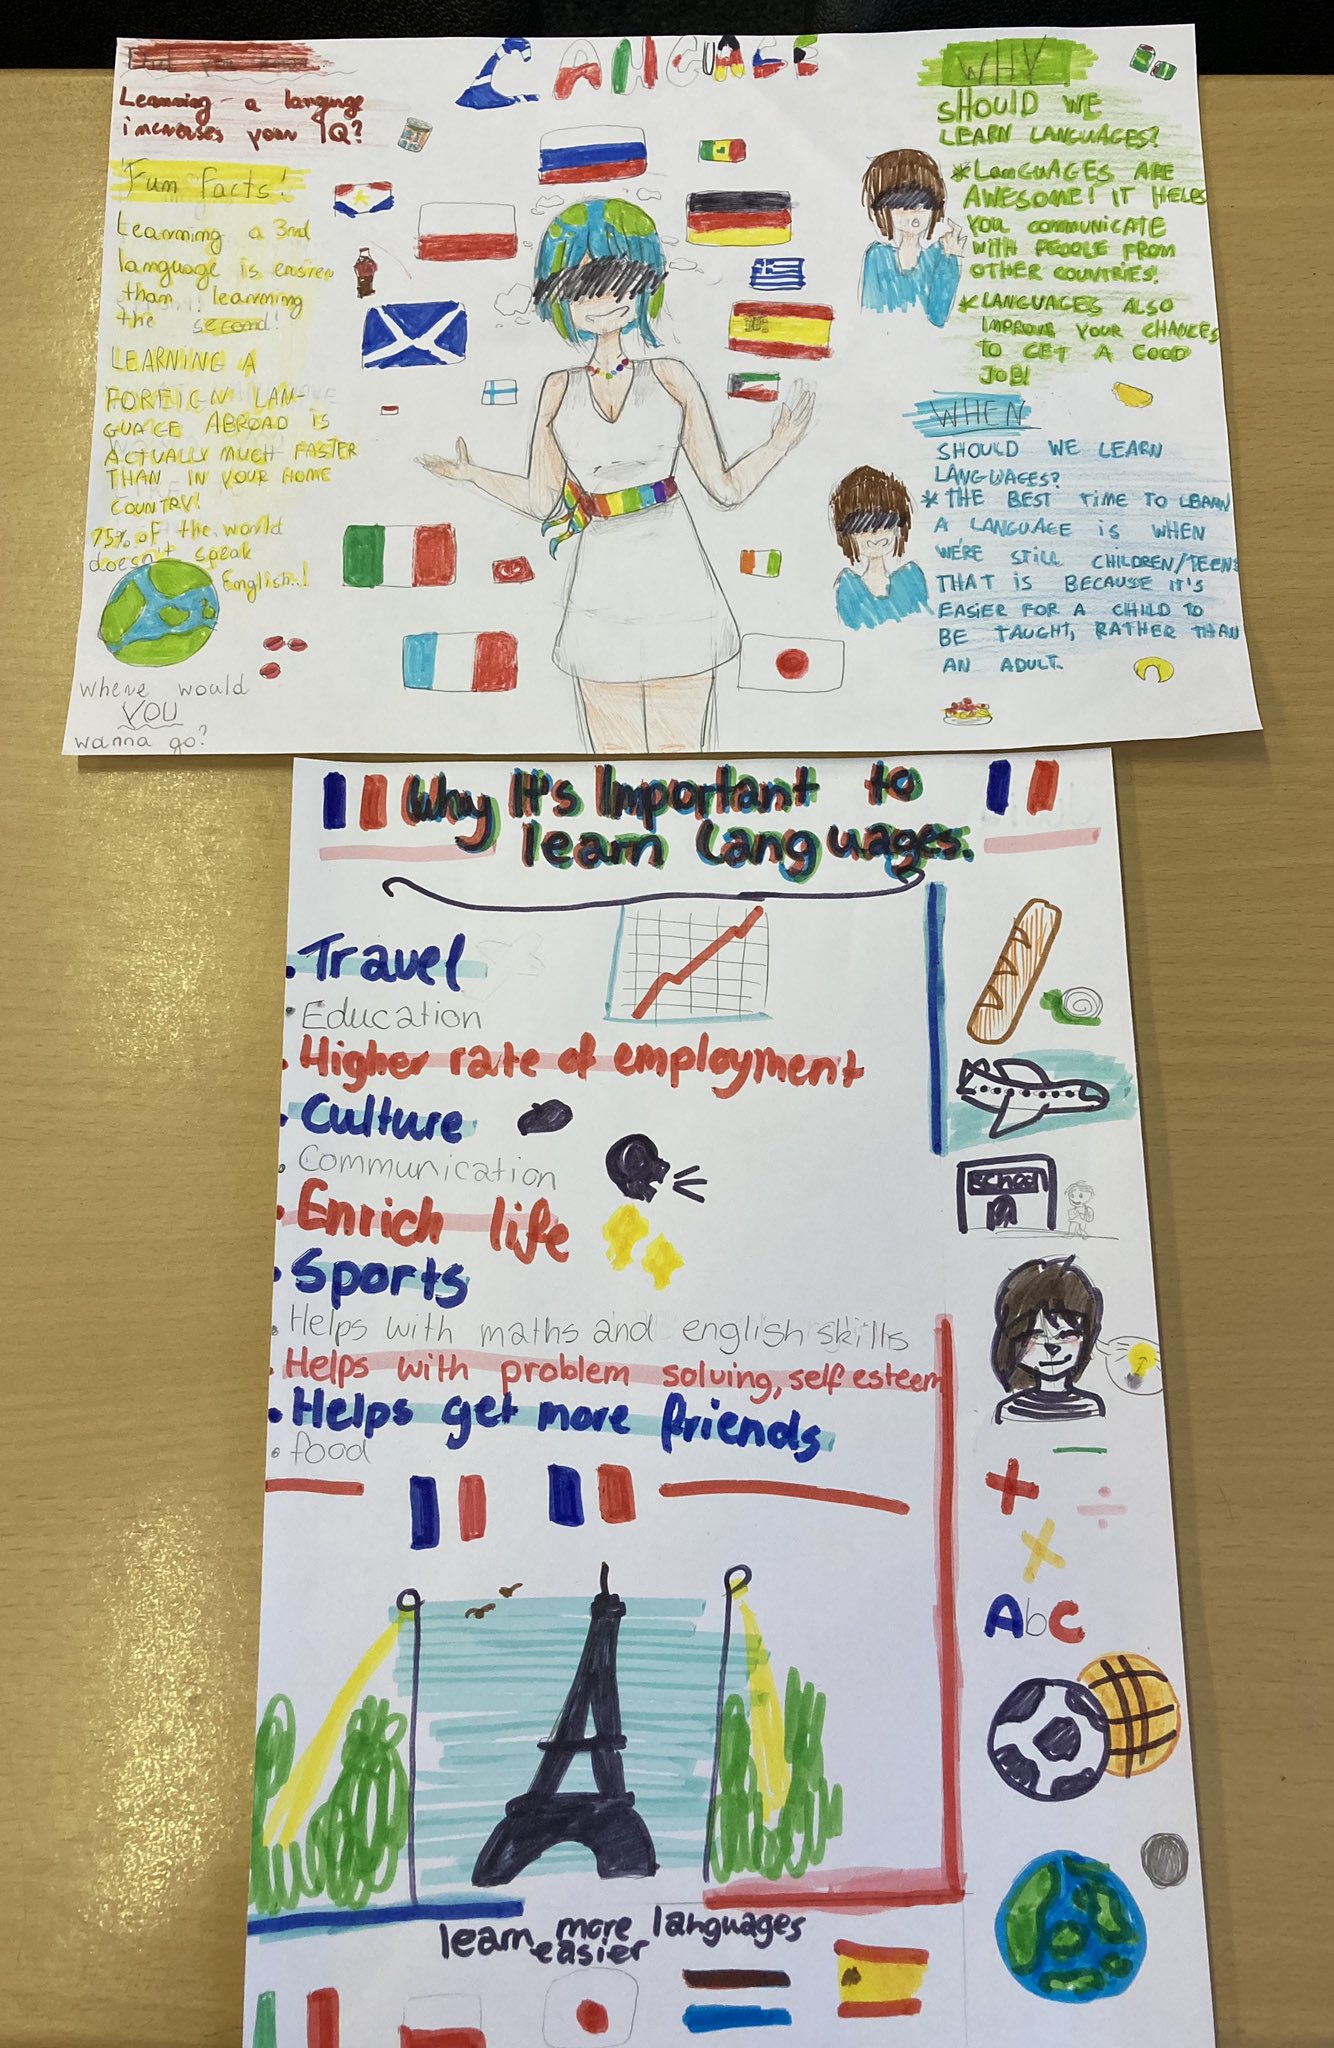 LANGUAGE
Did you know
Learning a language
increases your IQ?
Fun Facts!
Learning a 3nd
language is easier
than... learning
the second!
LEARNING A
FOREIGN LAN-
GUAGE ABROAD IS
ACTUALLY MUCH FASTER
THAN IN YOUR HOME
COUNTRY!
75% of the world
doesn't speak
English..!
Where would
YOU
wanna go?
WHY
SHOULD WE
LEARN LANGUAGES?
*LANGUAGES ARE
AWESOME! IT HELPS
YOU COMMUNICATE
WITH PEOPLE FROM
OTHER COUNTRIES!
*LANGUAGES ALSO
IMPROVE YOUR CHANCES
TO GET A GOOD
JOB!
WHEN
SHOULD WE LEARN
LANGUAGES?
* THE BEST TIME TO LEARN
A LANGUAGE IS WHEN
WE'RE STILL CHILDREN/TEENS
THAT IS BECAUSE IT'S
EASIER FOR A CHILD TO
BE TAUGHT, RATHER THAN
AN ADULT.
Why It's Important to
learn languages.
• Travel
• Education
• Higher rate of employment
• Culture
• Communication
• Enrich life
• Sports
• Helps with maths and english skills
• Helps with problem solving, self esteem
• Helps get more friends
• food
School
AbC
learn more languages
easier